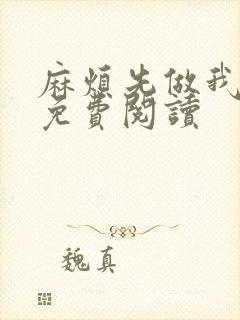 麻煩先做我
免費閱讀
魏真